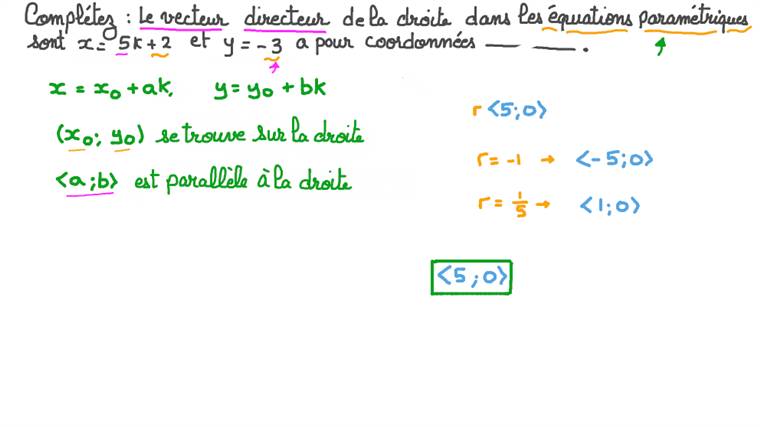 Complétez : Le vecteur directeur de la droite dans les équations paramétriques
sont x = 5k+2 et y = -3 a pour coordonnées ___ ___ .
x = x₀ + ak, y = y₀ + bk
(x₀; y₀) se trouve sur la droite
<a;b> est parallèle à la droite
r<5;0>
r = -1 → <-5;0>
r = 1/5 → <1;0>
<5;0>